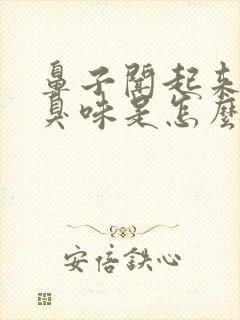 鼻子聞起來
臭味是怎麼
安倍鉄心